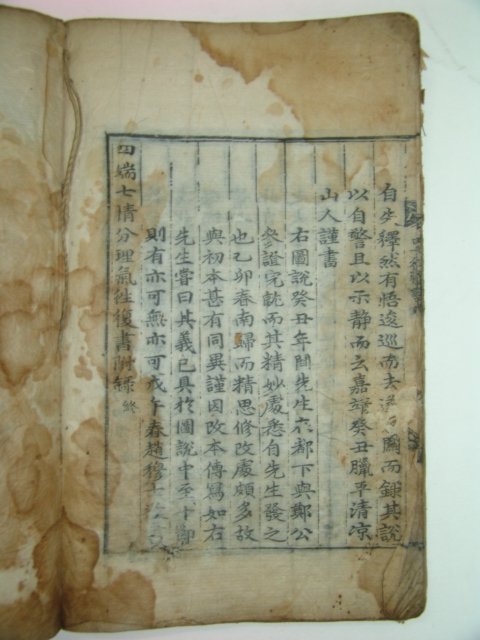 自失釋然有悟逡巡而去遂圖而錄其說
以自警且以示静而云嘉靖癸丑臘平清凉
山人謹書
右圖說癸丑年間先生在都下與鄭公
參證完就而其精妙處悉自先生發之
也乙卯春南歸而精思修改處頗多故
與初本甚有同異謹因改本傳寫如右
先生嘗曰其義已具於圖說中至十節
則有亦可無亦可戊午春趙穆士敬
四端七情分理氣往復書附錄 終